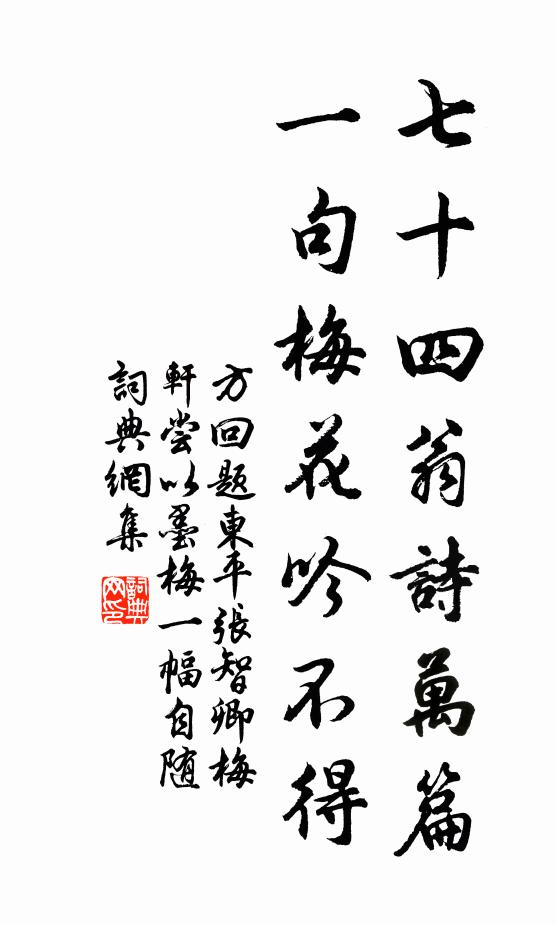 七十四翁詩萬篇
一句梅花吟不得
方回題東平張智卿梅
軒嘗以墨梅一幅自随
詞典網集
詞典